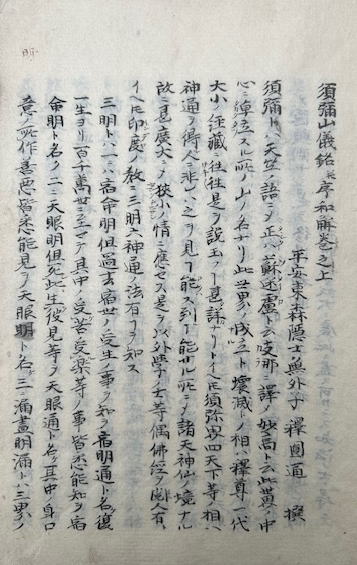 須彌山儀銘並序和解卷之上
平安東森隱士無外子釋圓通 撰
須彌ハ天竺ノ語ニテ正ハ蘇迷盧ト云支那ニ譯ノ妙高ト云此世界ノ中
心ニ峙立スル所ノ山ノ名ナリ此世界ノ成立ト壞滅ノ相ハ釋尊一代
大小ノ經藏ニ往往是ヲ説玉フ甚詳ナリトイヘ𪜈須弥界四天下等ノ相ハ
神通ヲ得人ニ非レハ之ヲ見ル能ス到ル能サル所ニノ諸天神仙ノ境ナル
故ニ甚廣大ニノ狹小ノ情ニ應セス是ヲ以外學ノ士等偶佛經ヲ閲人有
イヘ𪜈印度ノ教ニ三明六神通ノ法有ヿヲ知ス
三明トハ一ニハ宿命明但過去宿世ノ受生ノ事ヲ知ヲ宿明通ト名ク復
一生ヨリ百千萬世ニ至テ其中ノ受苦受樂等ノ事皆悉能知ヲ宿
命明ト名ク二ニ天眼明但死此生彼見等ヲ天眼通ト名ク其中ノ身口
意ノ所作善惡皆悉能見ヲ天眼明ト名ク三ニ漏盡明漏トハ三界ノ